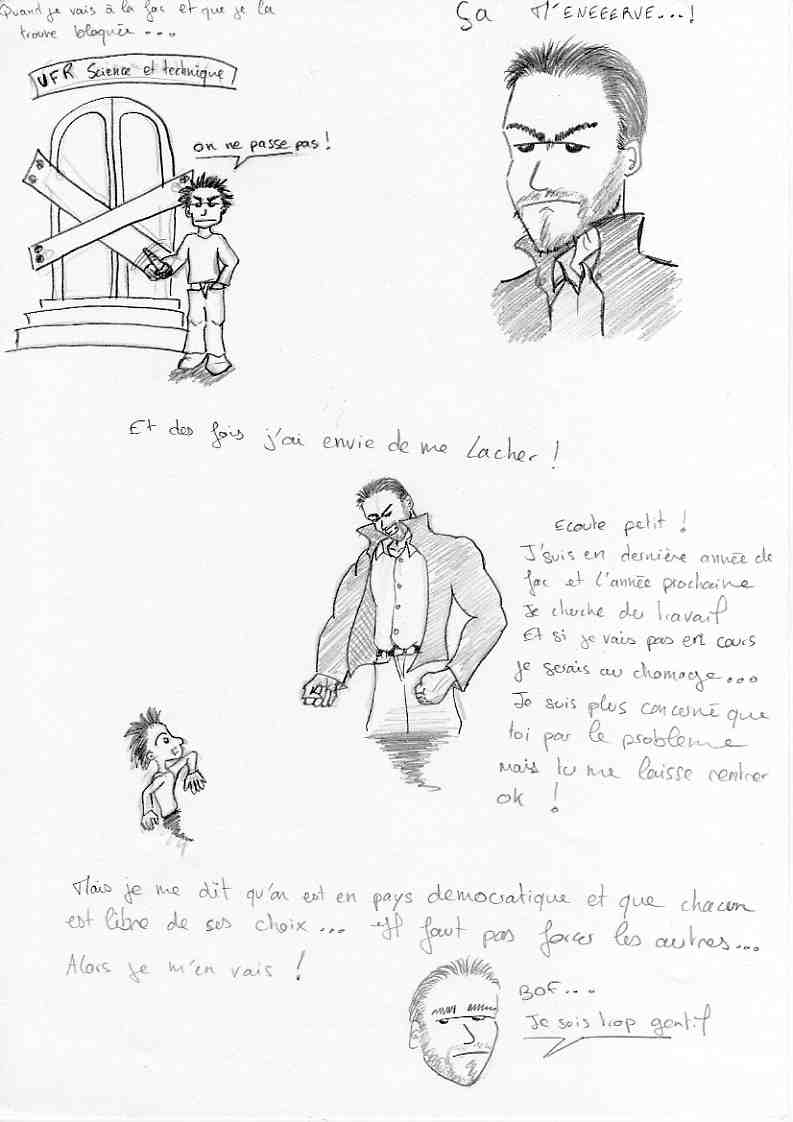 Quand je vais à la fac et que je la
trouve bloquée ...
UFR Science et technique
on ne passe pas !
ça M'ENEEERVE...!
Et des fois j'ai envie de me Lacher !
Ecoute petit !
J'suis en dernière année de
fac et l'année prochaine
Je cherche du travail
Et si je vais pas en cours
je serais au chomage...
Je suis plus concerné que
toi par le probleme
Mais tu me laisse rentrer
ok !
Mais je me dit qu'on est en pays democratique et que chacun
est libre de ses choix... Il faut pas forcer les autres...
Alors je m'en vais !
BOF...
Je suis trop gentil